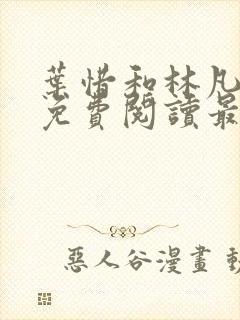 葉惜和林凡
免費閱讀最
惡人谷漫畫